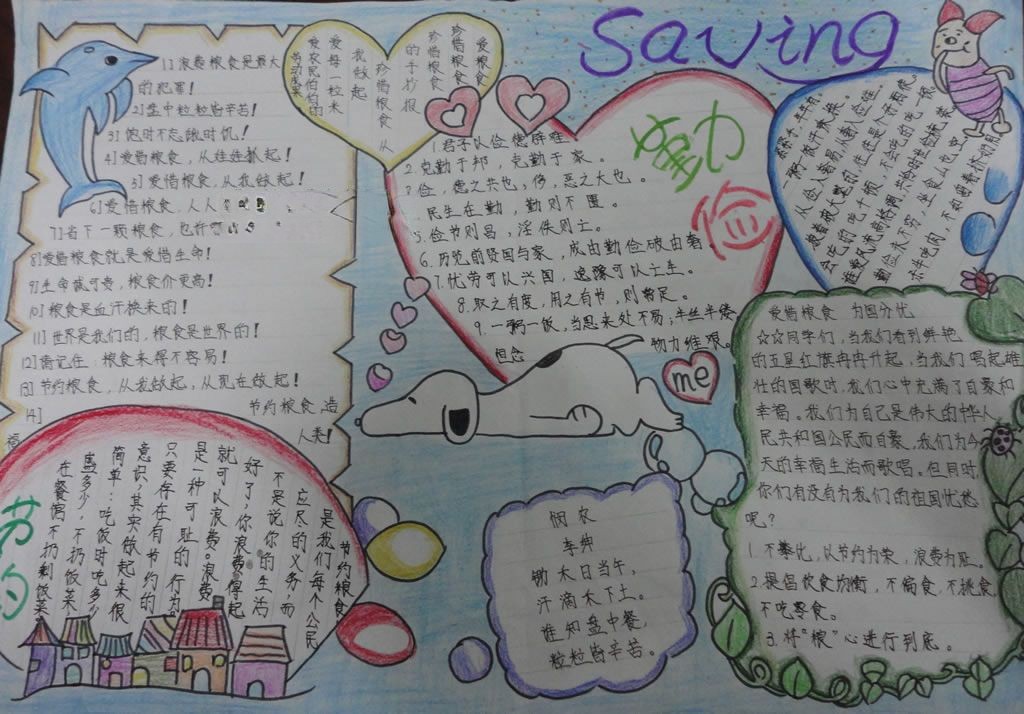 Saving
1] 浪费粮食是最大
的犯罪!
2] 盘中粒粒皆辛苦!
3] 饱时不忘饿时饥!
4] 爱惜粮食,从娃娃抓起!
5] 爱惜粮食,从我做起!
6] 爱惜粮食,人人
7] 省下一颗粮食,
8] 爱惜粮食就是爱惜生命!
9] 生命诚可贵,粮食价更高!
10] 粮食是血汗换来的!
11] 世界是我们的,粮食是世界的!
12] 需记住:粮食来得不容易!
13] 节约粮食,从我做起,从现在做起!
14]
节约粮食 造
福
人类!
爱粮食
珍惜粮食
珍惜粮食
的手抄报
珍惜粮食 从
我做起
爱每一粒米
爱农民伯伯的
劳动成果
勤
俭
1. 君子以俭德辟难
2. 克勤于邦,克勤于家。
俭,德之共也,侈,恶之大也。
民生在勤,勤则不匮。
5. 俭节则昌,淫佚则亡。
6. 历览前贤国与家,成由勤俭破由奢
7. 忧劳可以兴国,逸豫可以亡身。
8. 取之有度,用之有节,则常足。
9. 一粥一饭,当思来处不易;半丝半缕
恒念
物力维艰。
me
节约
节约粮食
是我们每个公民
应尽的义务,而
不是说你的生活
好了,你浪费得起
就可以浪费。浪费
是一种可耻的行为。
只要存在有节约的
意识,其实做起来很
简单:吃饭时吃多少
盛多少,不扔饭菜
在餐馆不扔剩饭菜
悯农
李绅
锄禾日当午,
汗滴禾下土。
谁知盘中餐,
粒粒皆辛苦。
爱惜粮食 为国分忧
☆☆同学们,当我们看到鲜艳
的五星红旗冉冉升起,当我们唱起雄
壮的国歌时,我们心中充满了自豪和
幸福。我们为自己是伟大的中华人
民共和国公民而自豪,我们为今
天的幸福生活而歌唱。但同时,
你们有没有为我们的祖国忧愁
呢?
1. 不攀比,以节约为荣,浪费为耻。
2. 提倡饮食均衡,不偏食,不挑食,
不吃零食。
3. 将“粮”心进行到底。